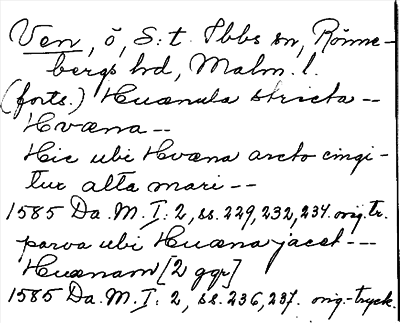 Ven, ö, S:t Ibbs sn, Rönne-
bergs hd, Malm. l.
(forts.) Huænula stricta --
Hvæna --
Hic ubi Hvæna arcto cingi-
tur alta mari --
1585 Da. M. I: 2, ss. 229, 232, 234. orig. tr.
parva ubi Huæna jacet ---
Huænam [2 ggr]
1585 Da. M. I: 2, ss. 236, 237. orig.-tryck.